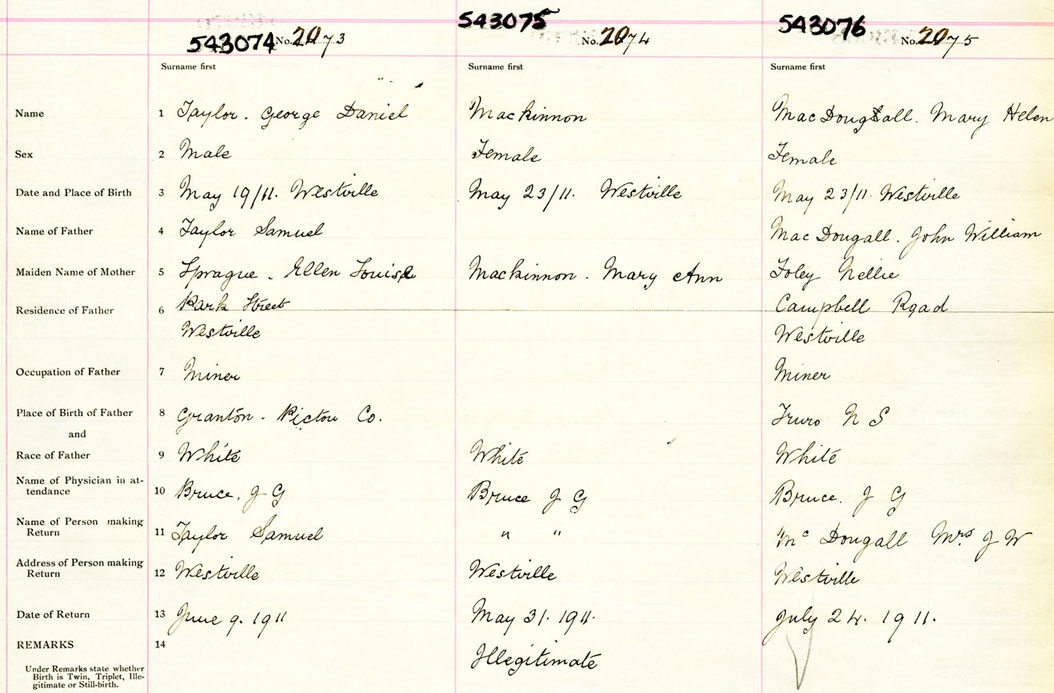 543074 No. 2073 543075 No. 2074 543076 No. 2075
Surname first Surname first Surname first
Name 1 Taylor. George Daniel Mackinnon MacDougall. Mary Helen
Sex 2 Male Female Female
Date and Place of Birth 3 May 19/11. Westville May 23/11. Westville May 23/11. Westville
Name of Father 4 Taylor Samuel MacDougall. John William
Maiden Name of Mother 5 Sprague. Ellen Louise Mackinnon. Mary Ann Foley Nellie
Residence of Father 6 Park Street Campbell Road
Westville Westville
Occupation of Father 7 Miner Miner
Place of Birth of Father 8 Granton. Pictou Co. Truro N S
and
Race of Father 9 White White White
Name of Physician in at-
tendance 10 Bruce. J G Bruce J G Bruce. J G
Name of Person making
Return 11 Taylor Samuel " " Mc Dougall Mrs J W
Address of Person making
Return 12 Westville Westville Westville
Date of Return 13 June 9. 1911 May 31. 1911. July 24. 1911.
REMARKS 14 Illegitimate
Under Remarks state whether
Birth is Twin, Triplet, Ille-
gitimate or Still-birth.